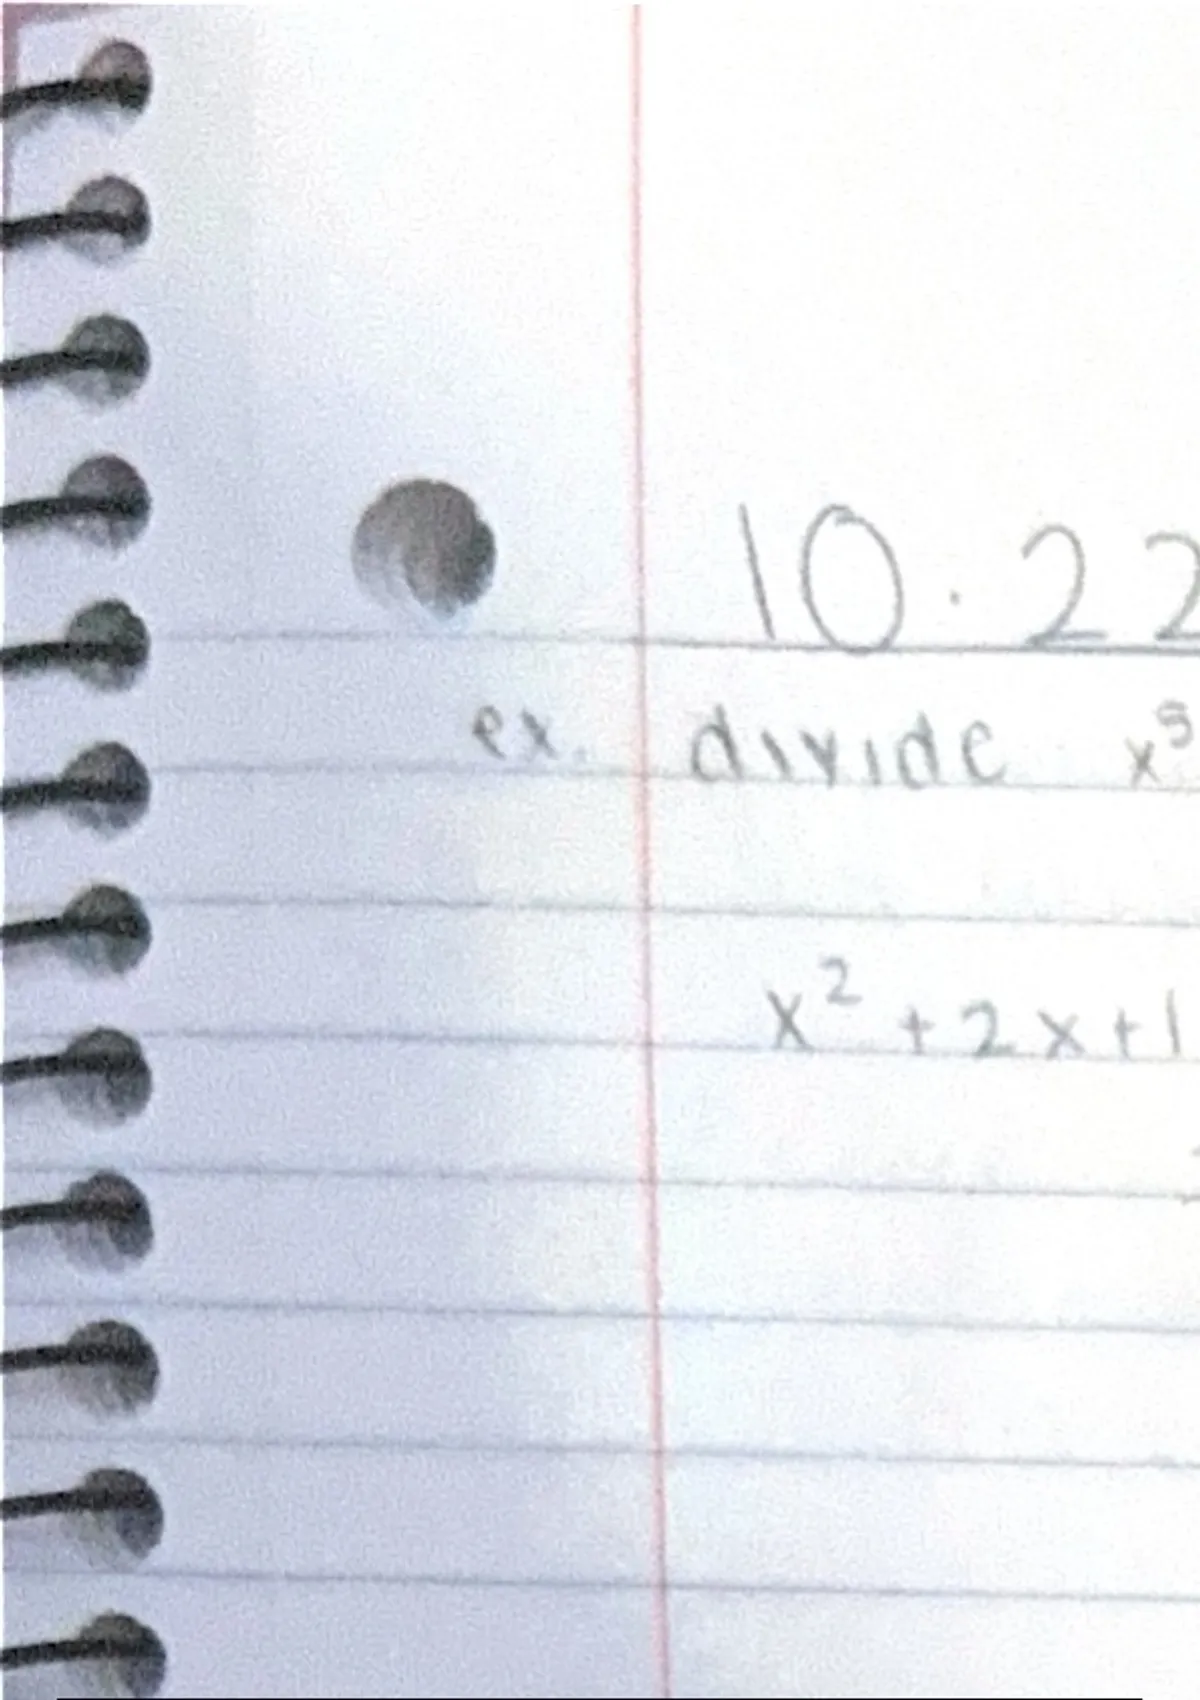 10.22
ex. divide x⁵
x² + 2x + 1